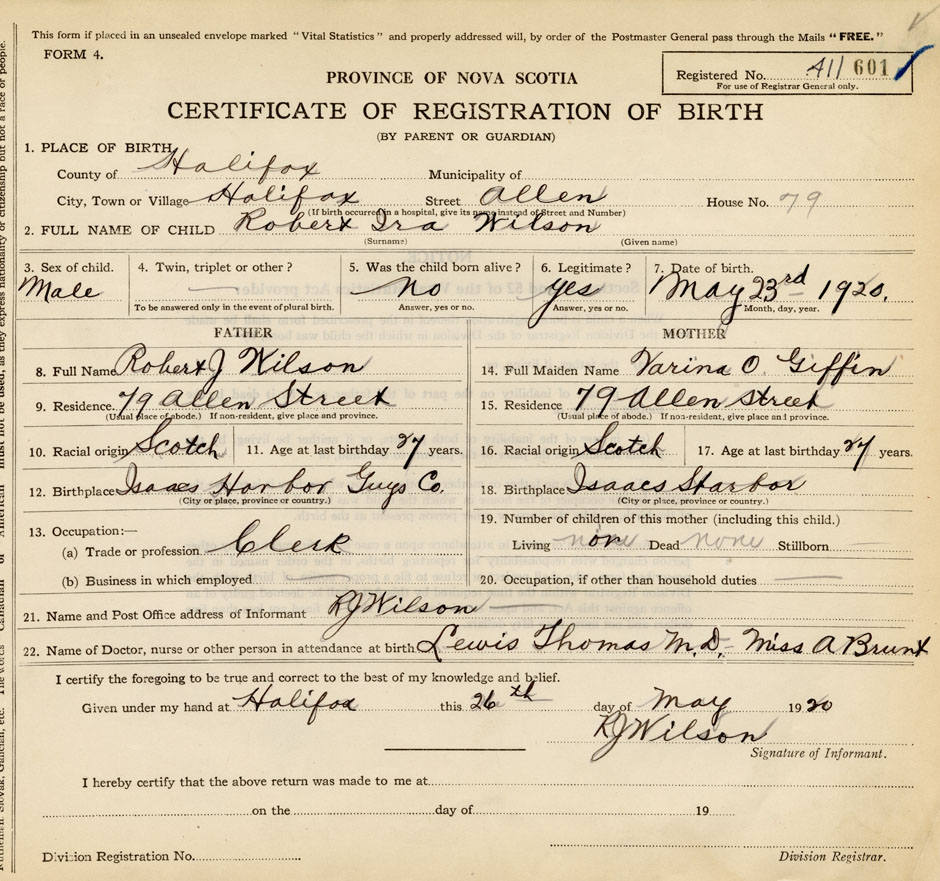 This form if placed in an unsealed envelope marked "Vital Statistics" and properly addressed will, by order of the Postmaster General pass through the Mails "FREE."
FORM 4.
Registered No. 411 601
For use of Registrar General only.
PROVINCE OF NOVA SCOTIA
CERTIFICATE OF REGISTRATION OF BIRTH
(BY PARENT OR GUARDIAN)
1. PLACE OF BIRTH
County of Halifax Municipality of
City, Town or Village Halifax Street Allen House No. 79
(If birth occurred in a hospital, give its name instead of Street and Number)
2. FULL NAME OF CHILD Robert Ira Wilson
(Surname) (Given name)
3. Sex of child. 4. Twin, triplet or other? 5. Was the child born alive? 6. Legitimate? 7. Date of birth.
Male — No Yes May 23rd 1920.
To be answered only in the event of plural birth. Answer, yes or no. Answer, yes or no. Month, day, year.
FATHER MOTHER
8. Full Name Robert J Wilson 14. Full Maiden Name Varina O. Giffin
9. Residence. 79 Allen Street 15. Residence 79 Allen Street
(Usual place of abode.) If non-resident, give place and province. (Usual place of abode.) If non-resident, give place and province.
10. Racial origin Scotch 11. Age at last birthday 27 years. 16. Racial origin Scotch 17. Age at last birthday 27 years.
12. Birthplace Isaacs Harbor Guys Co. 18. Birthplace Isaacs Harbor
(City or place, province or country.) (City or place, province or country.)
13. Occupation:— 19. Number of children of this mother (including this child.)
(a) Trade or profession Clerk Living none Dead none Stillborn
(b) Business in which employed — 20. Occupation, if other than household duties —
21. Name and Post Office address of Informant RJ Wilson —
22. Name of Doctor, nurse or other person in attendance at birth Lewis Thomas M.D. - Miss A Brunt
I certify the foregoing to be true and correct to the best of my knowledge and belief.
Given under my hand at Halifax this 26th day of May 1920
RJ Wilson
Signature of Informant.
I hereby certify that the above return was made to me at
on the day of 19
Division Registration No. Division Registrar.